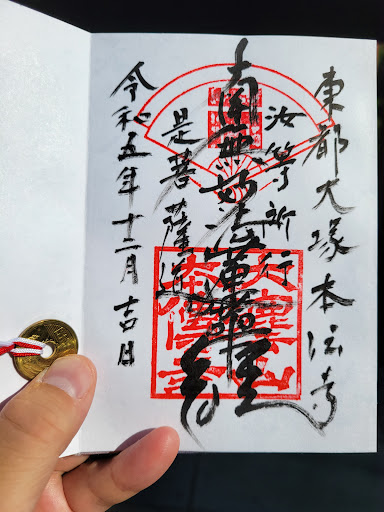 東都大塚本伝寺
汝等所行
南無妙法蓮華經
是菩薩道
令和五年十二月吉日
本傳寺